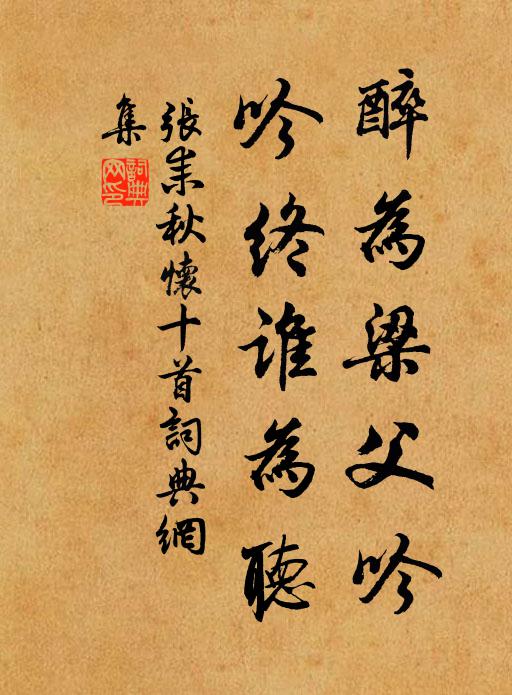 醉為梁父吟
吟終誰為聽
張耒秋懷十首詞典網
集
詞典網印